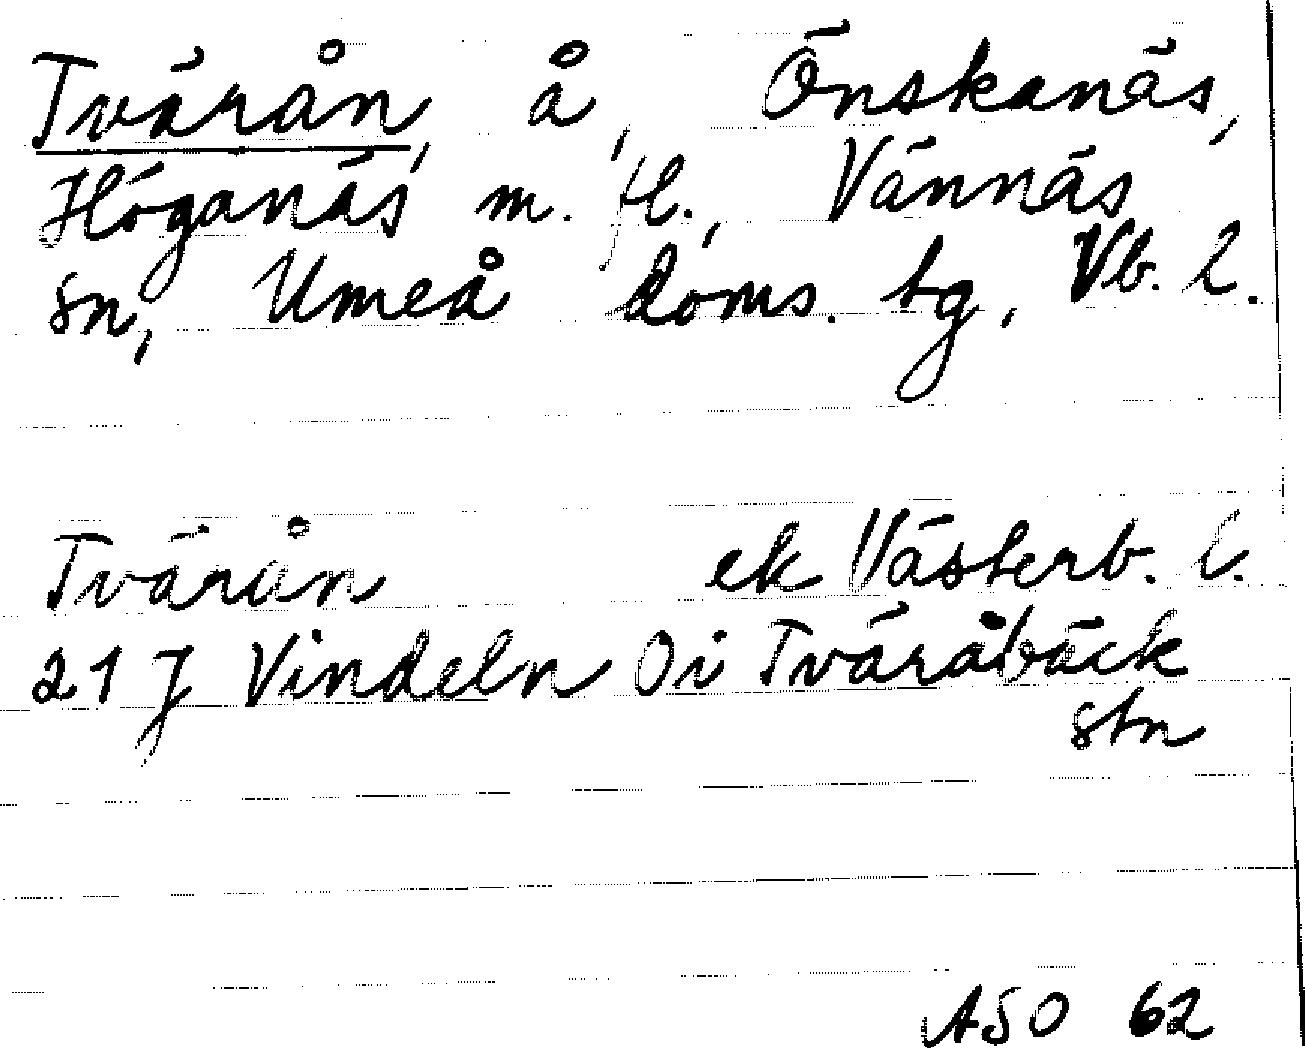 Tvärån, å, Önskanäs,
Höganäs m. fl., Vännäs
sn, Umeå doms. tg, Vb. l.
Tvärån ek Västerb. l.
21 J Vindeln Oi Tvåråbäck
stn
ASO 62